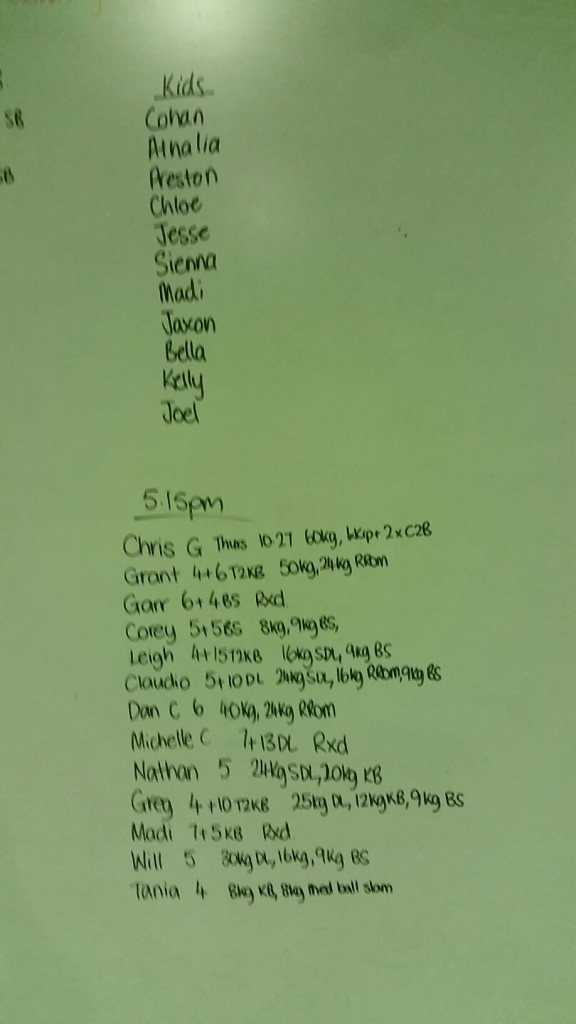 SB
SB
Kids
Cohan
Athalia
Preston
Chloe
Jesse
Sienna
Madi
Jaxon
Bella
Kelly
Joel
5.15pm
Chris G Thurs 10.27 60kg, 2xC2B
Grant 4+6T2KB 50kg, 24kg RRom
Garr 6+4BS Rxd
Corey 5+5BS 8kg, 9kgBS,
Leigh 4+15T2KB 16kgSDL, 9kg BS
Claudio 5+10DL 24kgSDL, 16kg RRom, 9kg BS
Dan C 6 40kg, 24kg RRom
Michelle C 7+13DL Rxd
Nathan 5 24kgSDL, 20kg KB
Greg 4+10T2KB 25kg DL, 12kgKB, 9kg BS
Madi 7+5KB Rxd
Will 5 30kg DL, 16kg, 9kg BS
Tania 4 8kg KB, 8kg med ball slam